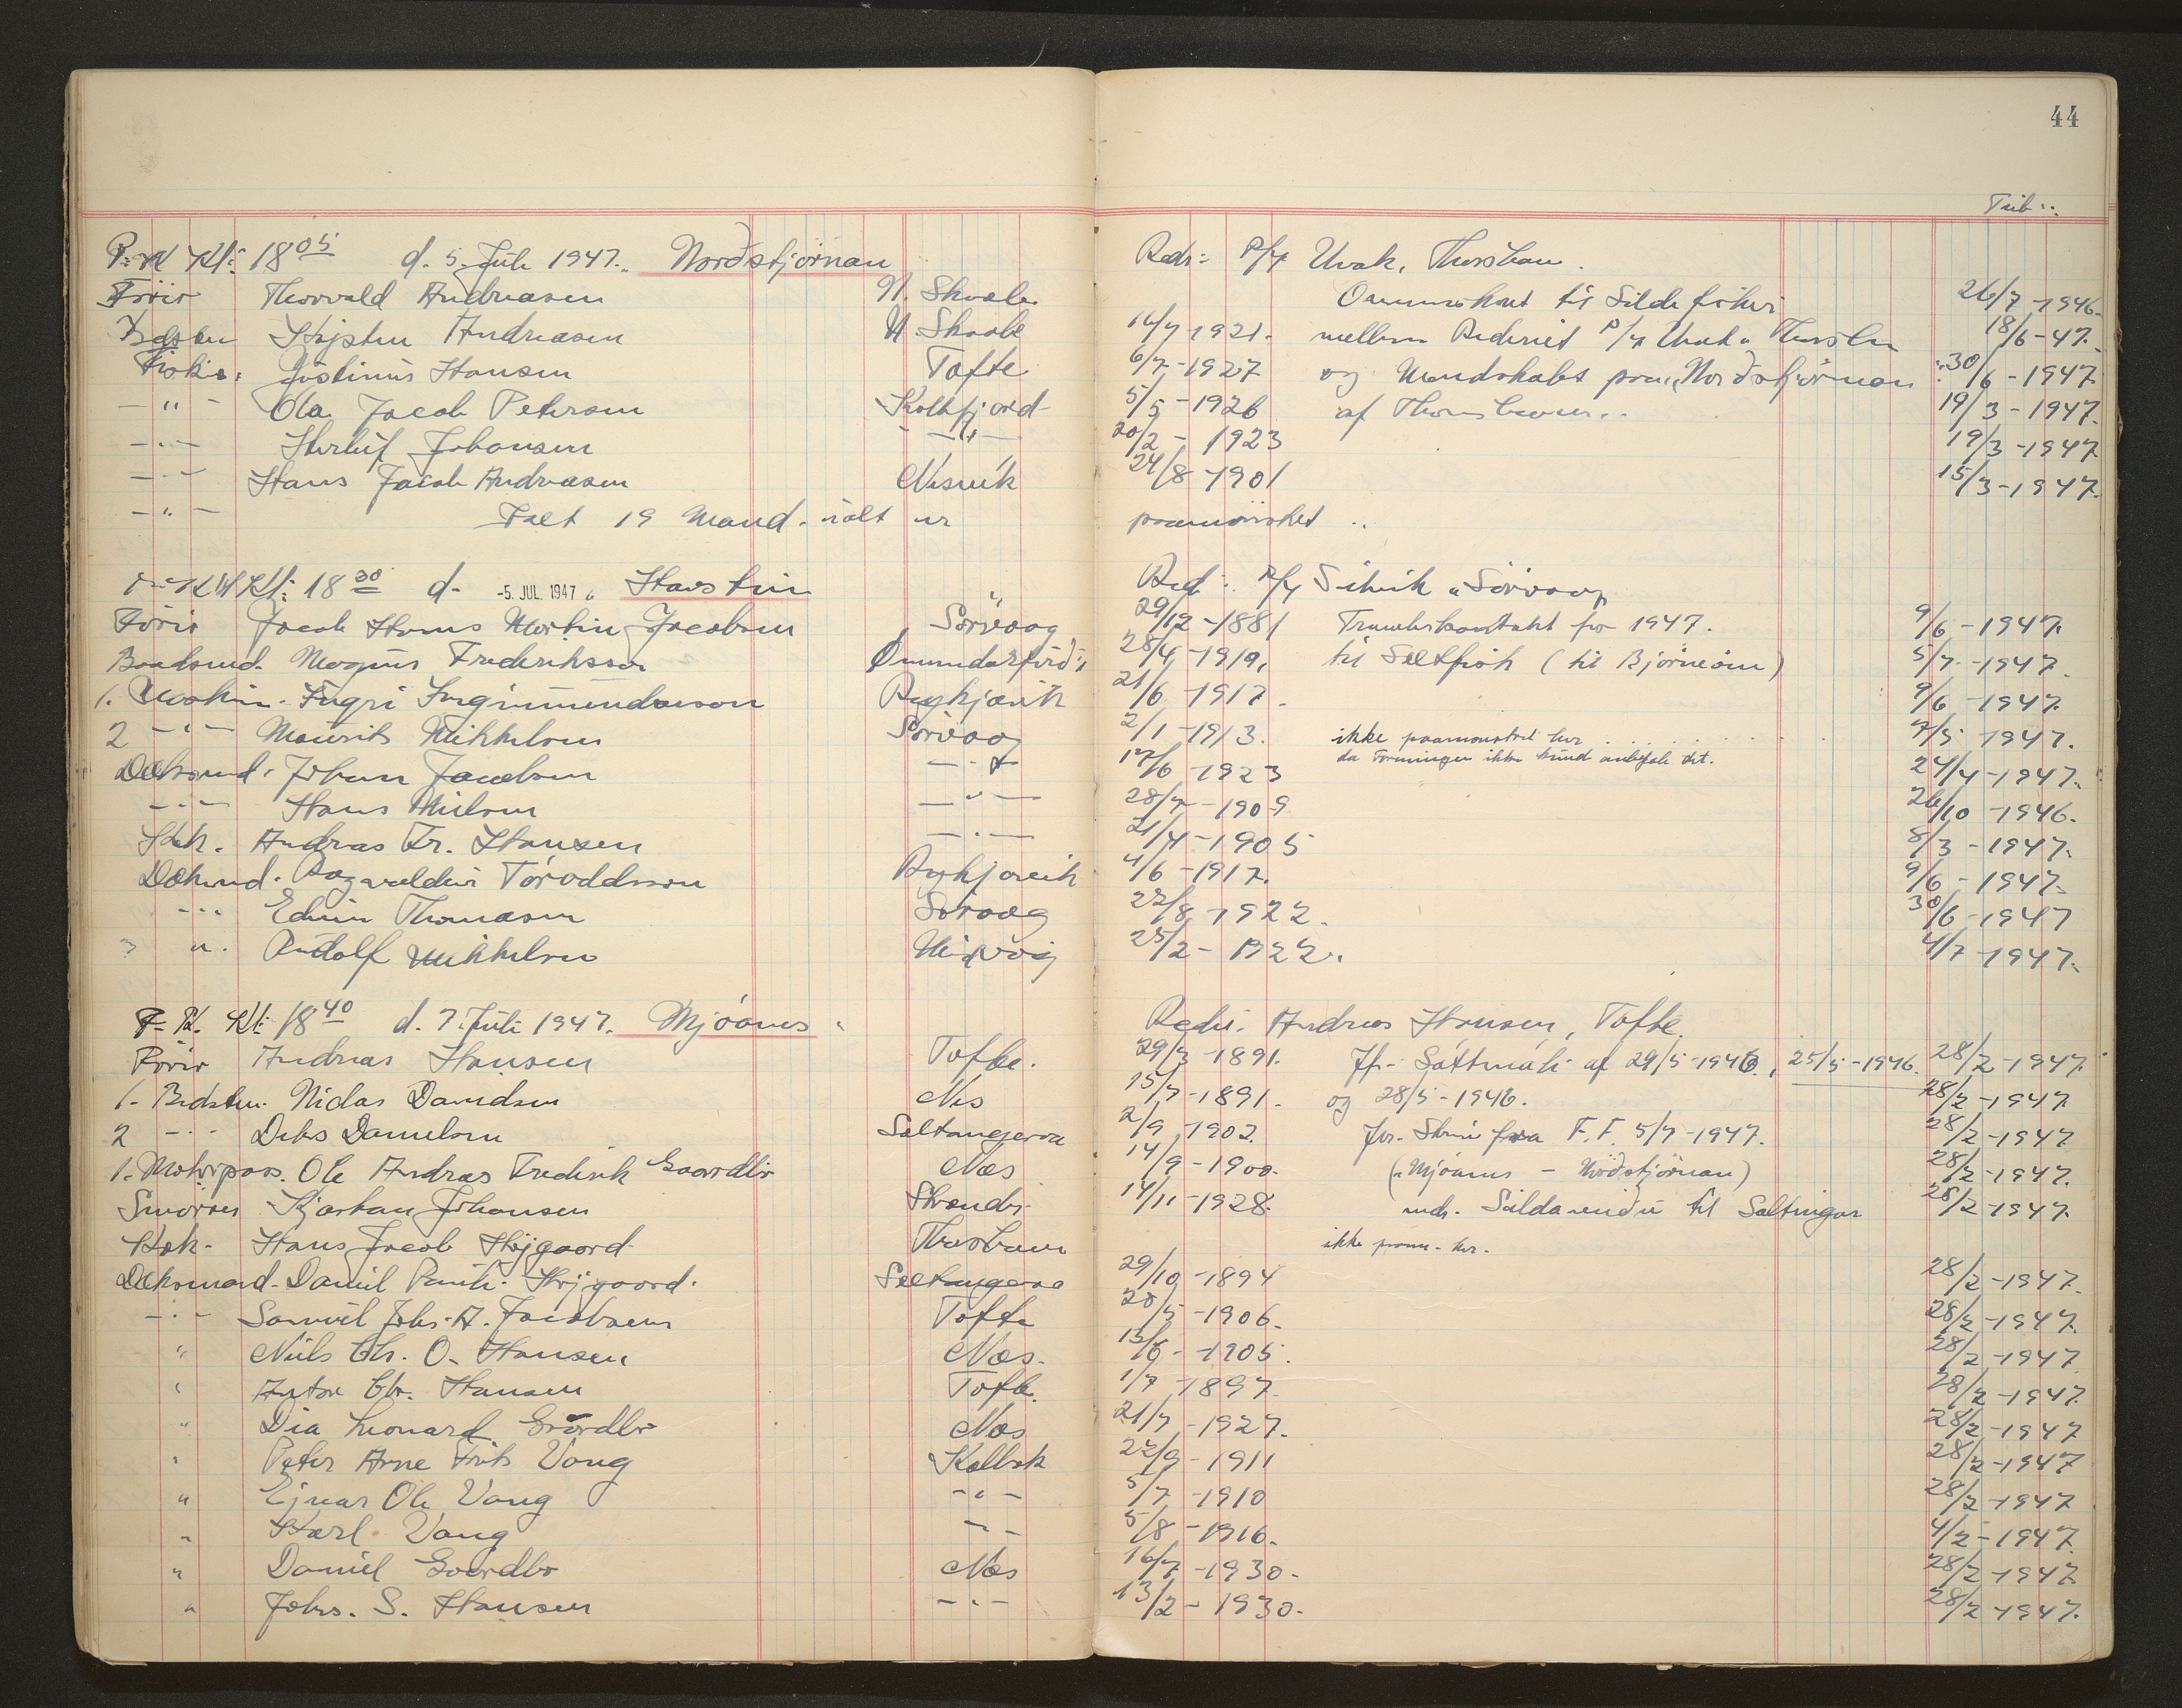 44
Tib:
P. M. Kl: 18 05 d. 5. Juli 1947. Norðstjörnan Redr: P/f Uvak, Thorshavn.
Förir Thorvald Andreasen N. Skaale Overenskomst til Sildefiskeri 26/7-1946.
Bedstm Højsten Andreasen N. Skaale 16/7-1921. mellem Rederiet P/f Uvak, Thorshavn 18/6-47.
Fisker Jóstinus Hansen Tofte 6/7-1927 og Mandskabet paa Norðstjörnan 30/6-1947.
-"- Ola Jacob Petersen Kolbfjord 5/5-1926 af Thorshavn. 19/3-1947.
-"- Herluf Johansen -"- 20/2-1923 19/3-1947
-"- Hans Jacob Andreasen Nesvík 24/8-1901 15/3-1947.
-"- Ialt 19 Mand. ialt er paamönstret
Kl: 18 30 d. -5. JUL. 1947 Havstein Red: P/f Silvik, Sörvaag
Förir Jacob Hans Martin Jacobsen Sörvaag 29/12-1881 Trawlerkontrakt for 1947. 9/6-1947.
Baadsmd. Magnus Frederiksson Önundarfirði 28/4-1919. til Saltfisk (til Björneöen) 5/7-1947.
1. Maskin. Ingvi Ingimundarson Reykjavik 21/6-1917. 9/6-1947.
2 -"- Maurits Mikkelsen Sörvaag 2/1-1913. ikke paamonstret her 7/5-1947.
Dæksmd. Johan Jacobsen -"- 17/6-1923 da Foreningen ikke kunde anbefale det. 24/4-1947.
-"- Hans Nielsen -"- 28/7-1909 26/10-1946.
Kok. Andreas Fr. Hansen -"- 21/4-1905 8/3-1947.
Dæksmd. Ragvaldur Tóroddsson Reykjavik 4/6-1917. 9/6-1947.
-"- Edvin Thomasen Sörvaag 22/8-1922. 30/6-1947
" Rudolf Mikkelsen Miðvåg 25/2-1922. 4/7-1947.
F. M. Kl: 18 40 d. 7. Juli 1947. Mjóanes Redr. Andreas Hansen, Tofte.
Förir Andreas Hansen Tofte. 29/3-1891. Jfr. Sáttmáli af 29/5-1946., 25/5-1946. 28/2-1947
1. Bedstm. Niclas Davidsen Nes 15/7-1891. og 28/5-1946. 28/2-1947
2 -"- Debes Danielsen Saltangerra 2/9-1902. Jvr. Skriv fra F.F. 5/7-1947. 28/2-1947
1. Motorpass. Ole Andreas Frederik Gaardbö Næs 14/9-1900. ("Mjóanes - Norðstjörnan) 28/2-1947.
Smörer Kjartan Johansen Strender 14/11-1928. ved. Sildaveiðu til Saltingar 28/2-1947.
Kok. Hans Jacob Højgaard Thorshavn ikke paam. her.
Dæksmand. Daniel Pauli Højgaard. Saltangeraa 29/10-1894 28/2-1947.
-"- Samuel Johs. A. Jacobsen Tofte 20/5-1906. 28/2-1947.
" Niels Chr. O. Hansen Næs. 13/6-1905. 28/2-1947
" Anton Chr. Hansen Tofte. 1/7-1897. 28/2-1947.
" Dia Leonard Gaardbö Næs 21/7-1927. 28/2-1947
" Peter Arne Frits Vang Kolbak 22/9-1911 28/2-1947
" Ejnar Ole Vang -"- 5/7-1910 28/2-1947
" Karl Vang -"- 5/8-1916. 4/2-1947
" Daniel Gaardbo Næs 16/7-1930. 28/2-1947
" Johs. S. Hansen -"- 13/2-1930. 28/2-1947.